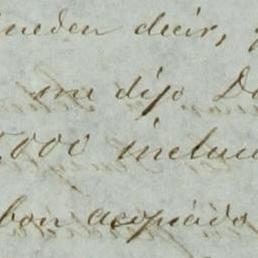 pueden decir,
me dijo
000 inclu
bon acopiado